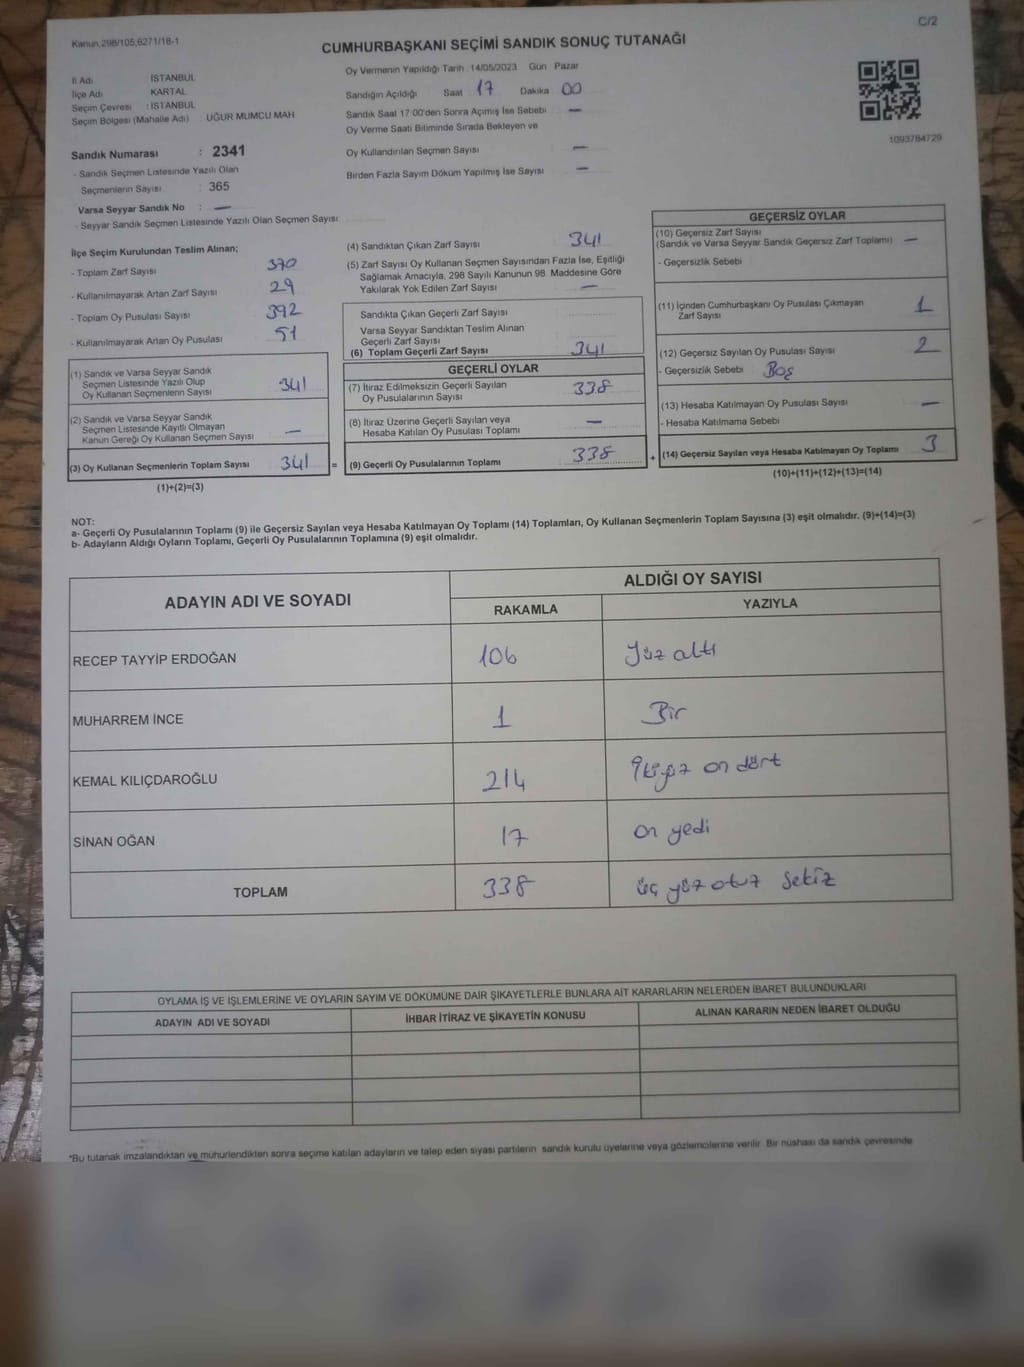 C/2
Kanun,298/105,6271/18-1
CUMHURBAŞKANI SEÇİMİ SANDIK SONUÇ TUTANAĞI
İl Adı : İSTANBUL
İlçe Adı : KARTAL
Seçim Çevresi : İSTANBUL
Seçim Bölgesi (Mahalle Adı) : UĞUR MUMCU MAH
Oy Vermenin Yapıldığı Tarih : 14/05/2023 Gün Pazar
Sandığın Açıldığı Saat 17 Dakika 00
Sandık Saat 17:00'den Sonra Açımış İse Sebebi —
Oy Verme Saati Bitiminde Sırada Bekleyen ve
Oy Kullandırılan Seçmen Sayısı —
Birden Fazla Sayım Döküm Yapılmış İse Sayısı —
1093784729
Sandık Numarası : 2341
- Sandık Seçmen Listesinde Yazılı Olan
Seçmenlerin Sayısı : 365
Varsa Seyyar Sandık No : —
- Seyyar Sandık Seçmen Listesinde Yazılı Olan Seçmen Sayısı
İlçe Seçim Kurulundan Teslim Alınan;
- Toplam Zarf Sayısı 370
- Kullanılmayarak Artan Zarf Sayısı 29
- Toplam Oy Pusulası Sayısı 392
- Kullanılmayarak Artan Oy Pusulası 51
(1) Sandık ve Varsa Seyyar Sandık
Seçmen Listesinde Yazılı Olup
Oy Kullanan Seçmenlerin Sayısı 341
(2) Sandık ve Varsa Seyyar Sandık
Seçmen Listesinde Kayıtlı Olmayan
Kanun Gereği Oy Kullanan Seçmen Sayısı —
(3) Oy Kullanan Seçmenlerin Toplam Sayısı 341
(1)+(2)=(3)
(4) Sandıktan Çıkan Zarf Sayısı 341
(5) Zarf Sayısı Oy Kullanan Seçmen Sayısından Fazla İse, Eşitliği
Sağlamak Amacıyla, 298 Sayılı Kanunun 98. Maddesine Göre
Yakılarak Yok Edilen Zarf Sayısı —
Sandıkta Çıkan Geçerli Zarf Sayısı
Varsa Seyyar Sandıktan Teslim Alınan
Geçerli Zarf Sayısı
(6) Toplam Geçerli Zarf Sayısı 341
GEÇERLİ OYLAR
(7) İtiraz Edilmeksizin Geçerli Sayılan
Oy Pusulalarının Sayısı 338
(8) İtiraz Üzerine Geçerli Sayılan veya
Hesaba Katılan Oy Pusulası Toplamı —
= (9) Geçerli Oy Pusulalarının Toplamı 338
GEÇERSİZ OYLAR
(10) Geçersiz Zarf Sayısı
(Sandık ve Varsa Seyyar Sandık Geçersiz Zarf Toplamı) —
- Geçersizlik Sebebi
(11) İçinden Cumhurbaşkanı Oy Pusulası Çıkmayan
Zarf Sayısı 1
(12) Geçersiz Sayılan Oy Pusulası Sayısı 2
- Geçersizlik Sebebi Boş
(13) Hesaba Katılmayan Oy Pusulası Sayısı —
- Hesaba Katılmama Sebebi
+ (14) Geçersiz Sayılan veya Hesaba Katılmayan Oy Toplamı 3
(10)+(11)+(12)+(13)=(14)
NOT:
a- Geçerli Oy Pusulalarının Toplamı (9) ile Geçersiz Sayılan veya Hesaba Katılmayan Oy Toplamı (14) Toplamları, Oy Kullanan Seçmenlerin Toplam Sayısına (3) eşit olmalıdır. (9)+(14)=(3)
b- Adayların Aldığı Oyların Toplamı, Geçerli Oy Pusulalarının Toplamına (9) eşit olmalıdır.
ADAYIN ADI VE SOYADI
ALDIĞI OY SAYISI
RAKAMLA YAZIYLA
RECEP TAYYİP ERDOĞAN 106 Yüz altı
MUHARREM İNCE 1 Bir
KEMAL KILIÇDAROĞLU 214 İkiyüz on dört
SİNAN OĞAN 17 on yedi
TOPLAM 338 üç yüz otuz sekiz
OYLAMA İŞ VE İŞLEMLERİNE VE OYLARIN SAYIM VE DÖKÜMÜNE DAİR ŞİKAYETLERLE BUNLARA AİT KARARLARIN NELERDEN İBARET BULUNDUKLARI
ADAYIN ADI VE SOYADI İHBAR İTİRAZ VE ŞİKAYETİN KONUSU ALINAN KARARIN NEDEN İBARET OLDUĞU
*Bu tutanak imzalandıktan ve mühürlendikten sonra seçime katılan adayların ve talep eden siyasi partilerin sandık kurulu üyelerine veya gözlemcilerine verilir. Bir nüshası da sandık çevresinde